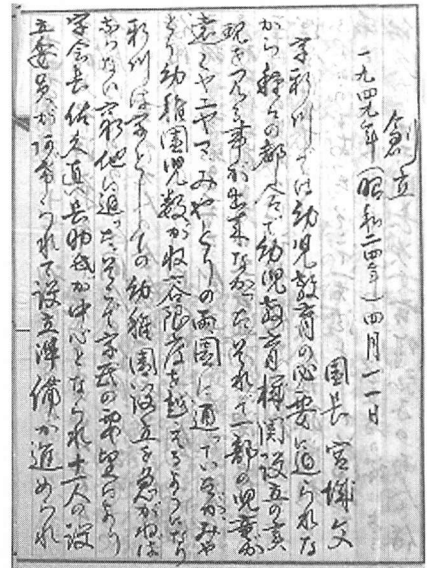 創立
一九四九年(昭和二四年)四月一一日
園長 宮城文
字新川では幼児教育の必要に迫られな
がら種々の都合で幼児教育機関設立の実
現を見る事が出来なかった。それで一部の児童が
遠いやえやまみやとりの両園に通っていたがみや
とり幼稚園児数が収容限度を越えるようになり
新川は字としての幼稚園設立を急がねば
ならない窮地に迫った。そこで字民の要望により
字会長佐久真長助氏が中心となられ十一人の設
立委員が られて設立準備が進められ